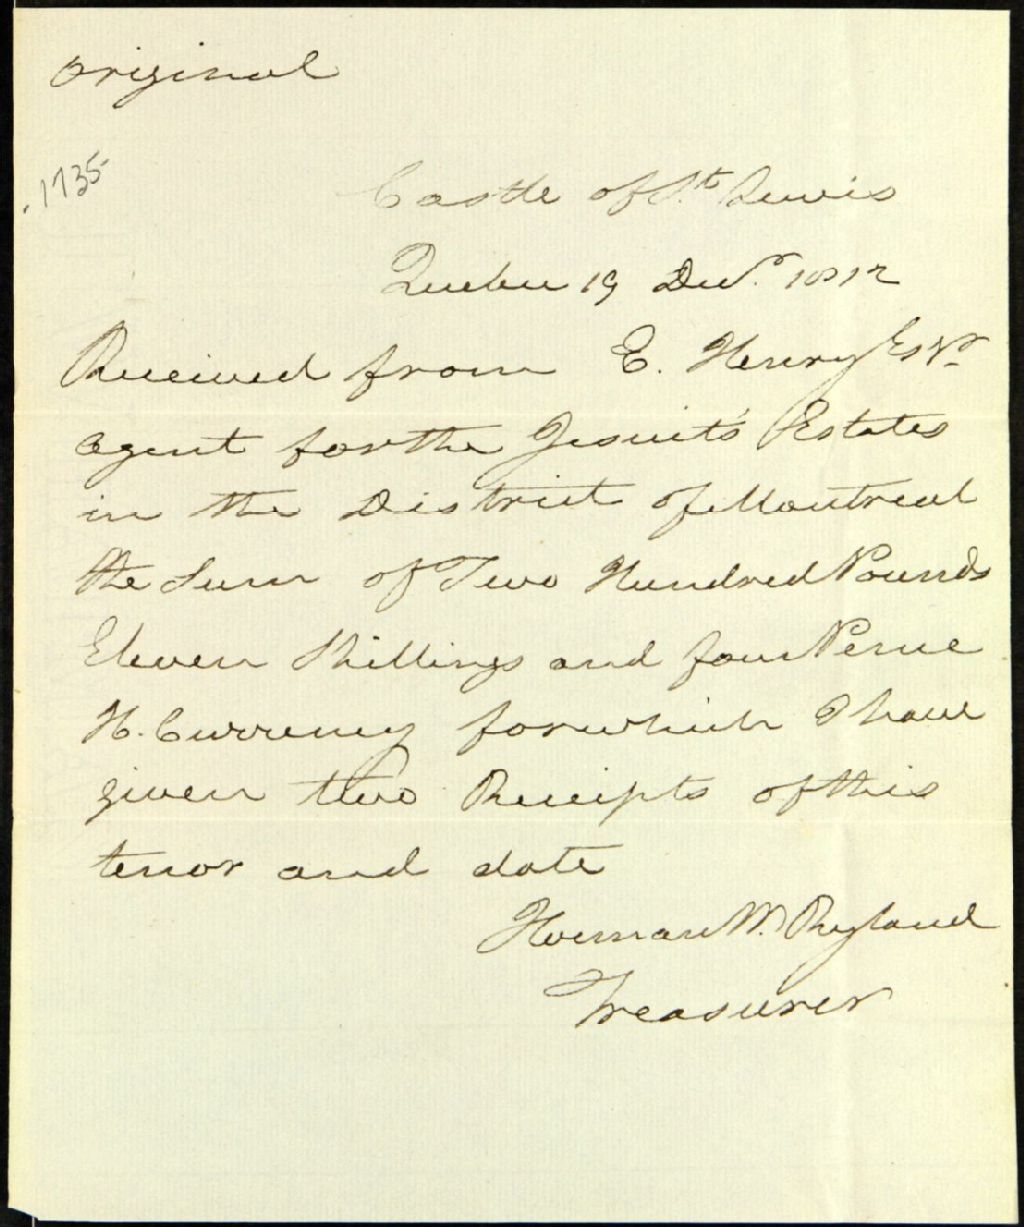 Original
1735
Castle of St. Lewis
Quebec 19 Decr. 1812
Received from E. Henry Esqr.
agent for the Jesuit's Estates
in the District of Montreal
the Sum of Two Hundred Pounds
Eleven Shillings and four Pence
H. Currency for which I have
given two Receipts of this
tenor and date
Herman W. Ryland
Treasurer